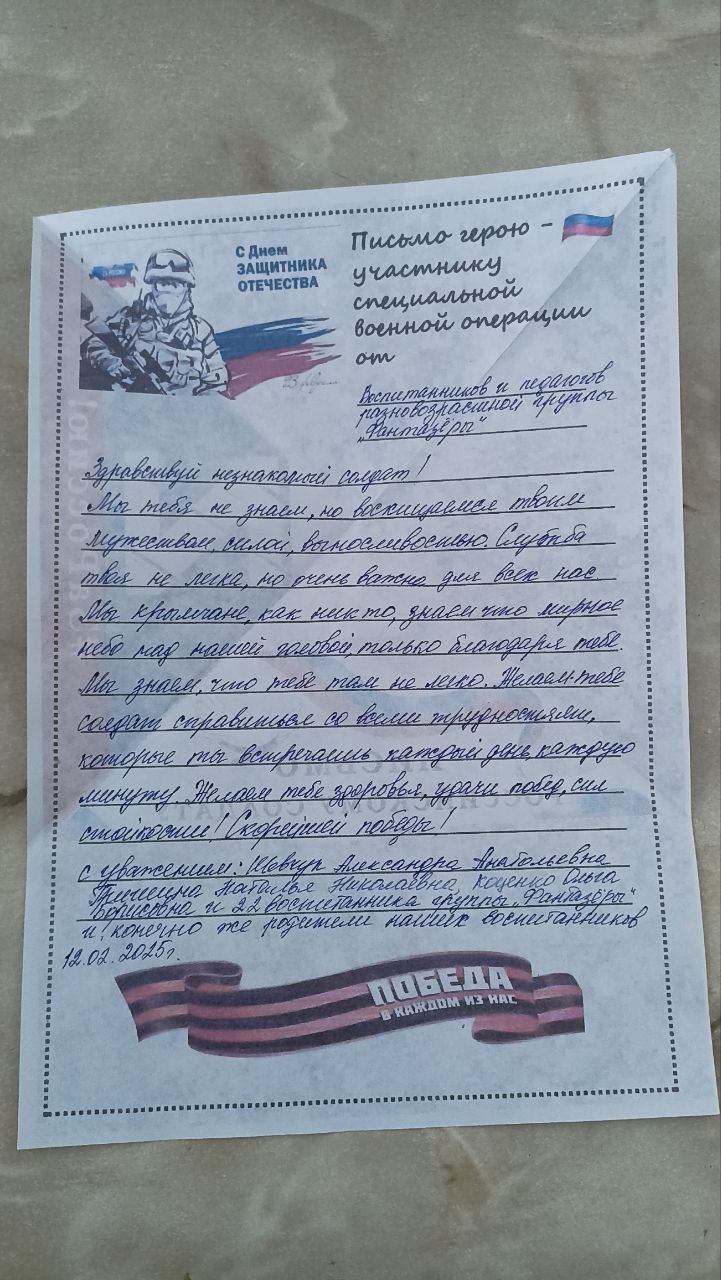 С Днем
ЗАЩИТНИКА
ОТЕЧЕСТВА
Письмо герою -
участнику
специальной
военной операции
от
Воспитанников и педагогов
разновозрастной группы
„Фантазёры"
Здравствуй незнакомый солдат!
Мы тебя не знаем, но восхищаемся твоим
мужеством, силой, выносливостью. Служба
твоя не легка, но очень важна для всех нас
Мы крымчане, как никто, знаем что мирное
небо над нашей головой, только благодаря тебе.
Мы знаем, что тебе там не легко. Желаем тебе
солдат справиться со всеми трудностями,
которые ты встречаешь каждый день, каждую
минуту. Желаем тебе здоровья, удачи побед, сил
стойкости! Скорейшей победы!
с уважением: Шевчук Александра Анатольевна
Наталья Николаевна, Коценко Ольга
Борисовна и 22 воспитанника группы „Фантазёры"
и! конечно же родители наших воспитанников
12.02.2025г.
ПОБЕДА
В КАЖДОМ ИЗ НАС